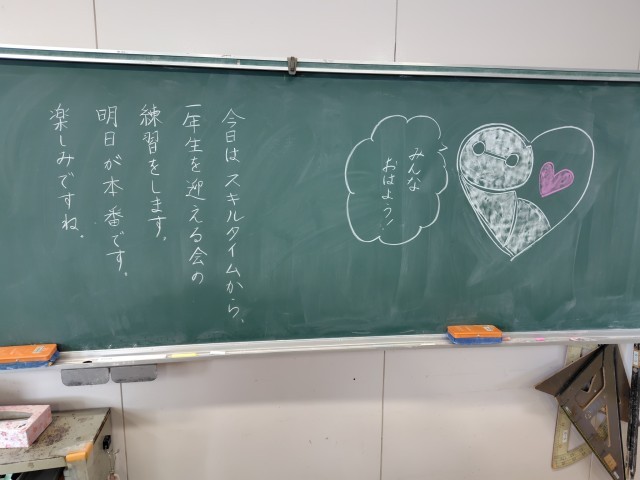 みんな
おはよう!
今日はスキルタイムから、
一年生を迎える会の
練習をします。
明日が本番です。
楽しみですね。